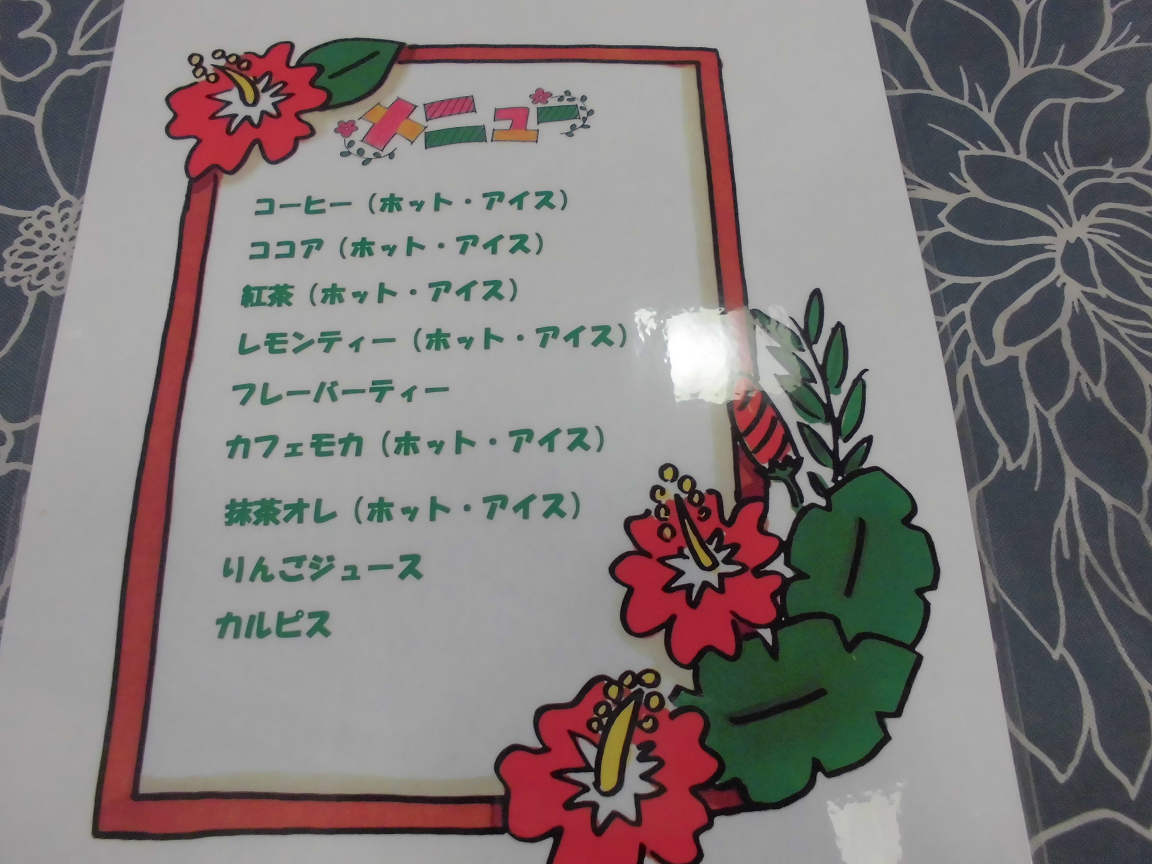 メニュー
コーヒー（ホット・アイス）
ココア（ホット・アイス）
紅茶（ホット・アイス）
レモンティー（ホット・アイス）
フレーバーティー
カフェモカ（ホット・アイス）
抹茶オレ（ホット・アイス）
りんごジュース
カルピス